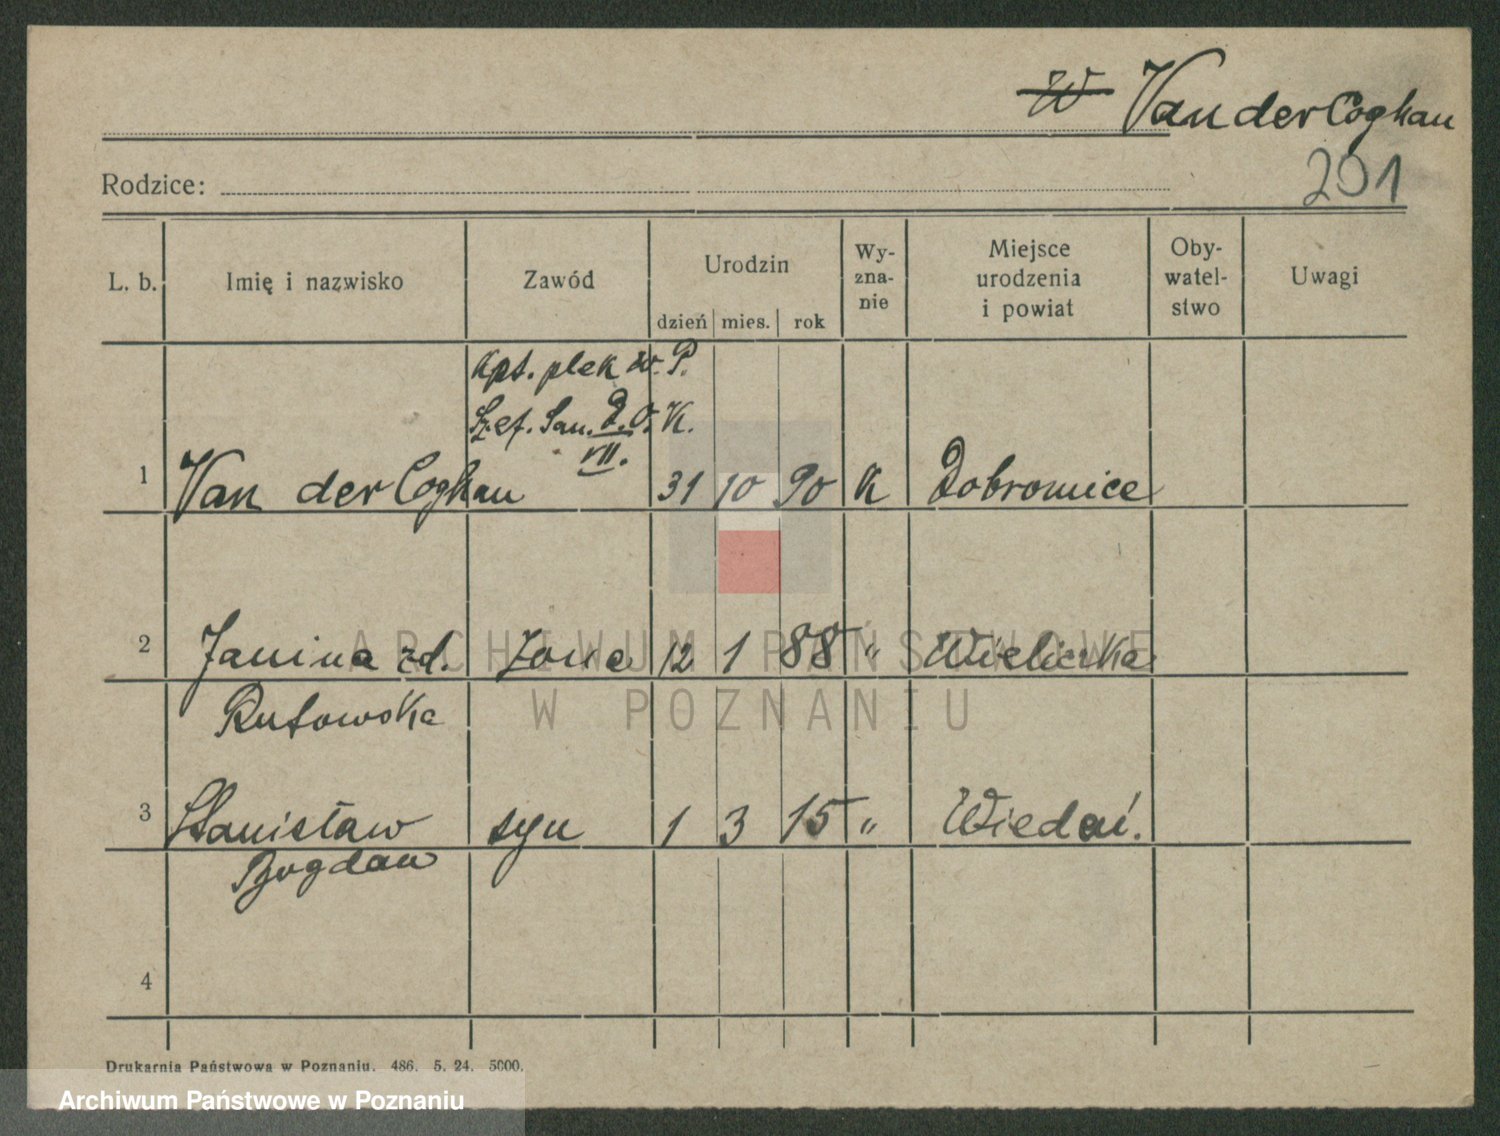 W Van der Coghau
Rodzice:
201
L. b. Imię i nazwisko Zawód Urodzin dzień mies. rok Wy-zna-nie Miejsce urodzenia i powiat Oby-watel-stwo Uwagi
Kpt. plek w. P.
Szef. San. D.O.K.
VII.
1 Van der Coghau 31 10 90 K Dobromice
2 Janina zd. Żona 12 1 88 " Wieliczka
Rutowska
3 Stanisław syn 1 3 15 " Wiedeń.
Bogdan
4
Drukarnia Państwowa w Poznaniu. 486. 5. 24. 5000.
ARCHIWUM PAŃSTWOWE
W POZNANIU
Archiwum Państwowe w Poznaniu